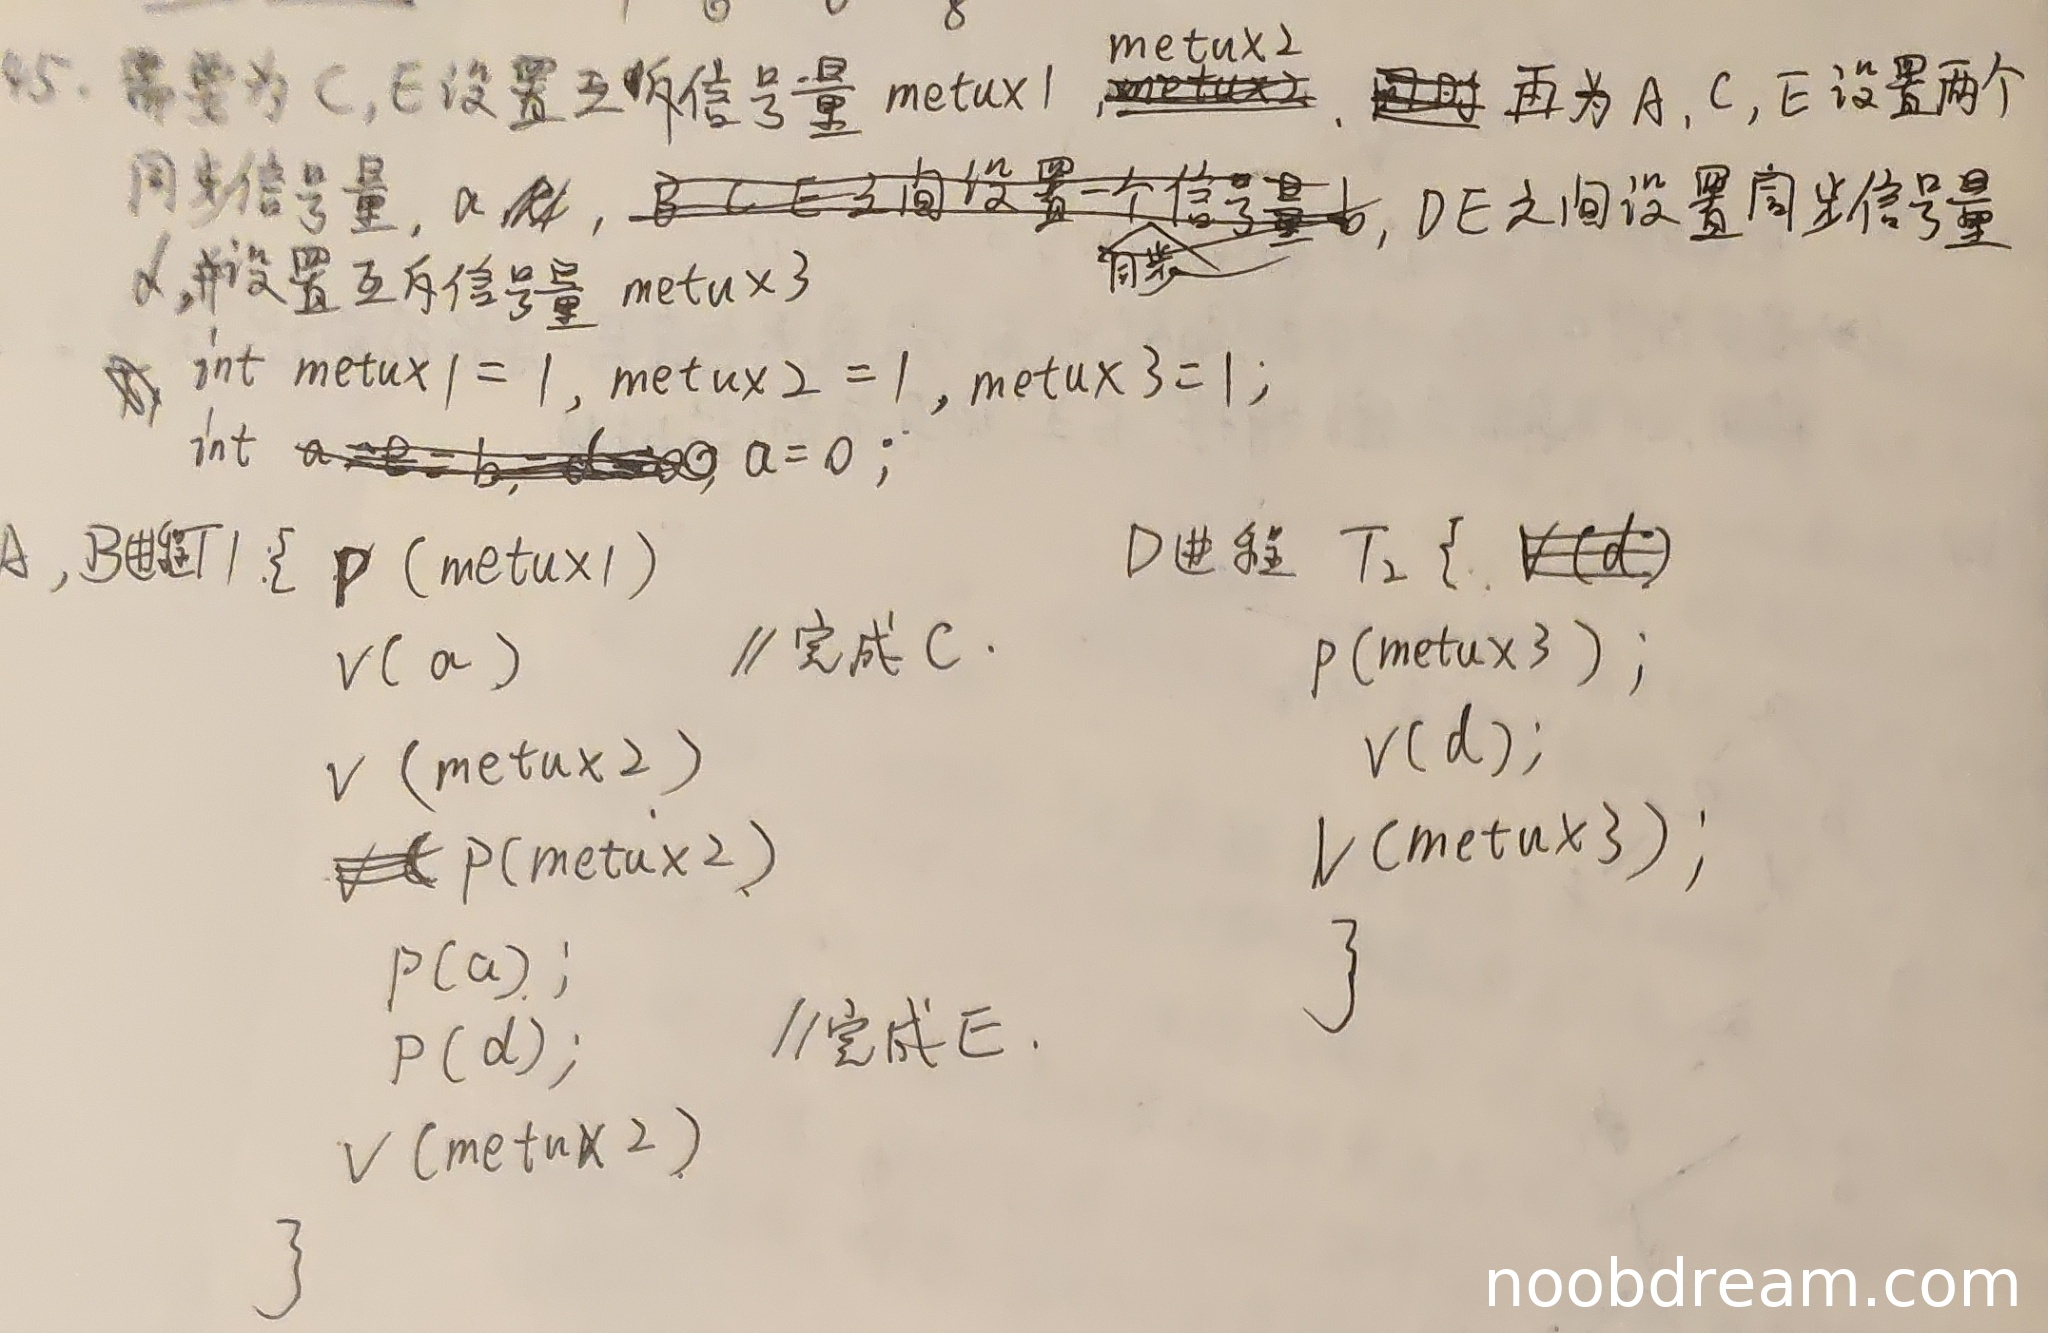 45. 需要为 C, E 设置互斥信号量 metux1, metux2. 再为 A, C, E 设置两个
同步信号量, a, DE之间设置同步信号量
同步
d,并设置互斥信号量 metux3
int metux1 = 1, metux2 = 1, metux3 = 1;
int a = 0;
A, B进程T1 { P (metux1)
V(a) // 完成 C.
V (metux2)
P(metux2)
P(a);
P(d); // 完成 E.
V (metux2)
}
D进程 T2 { V(d)
P(metux3);
V(d);
V(metux3);
}
noobdream.com